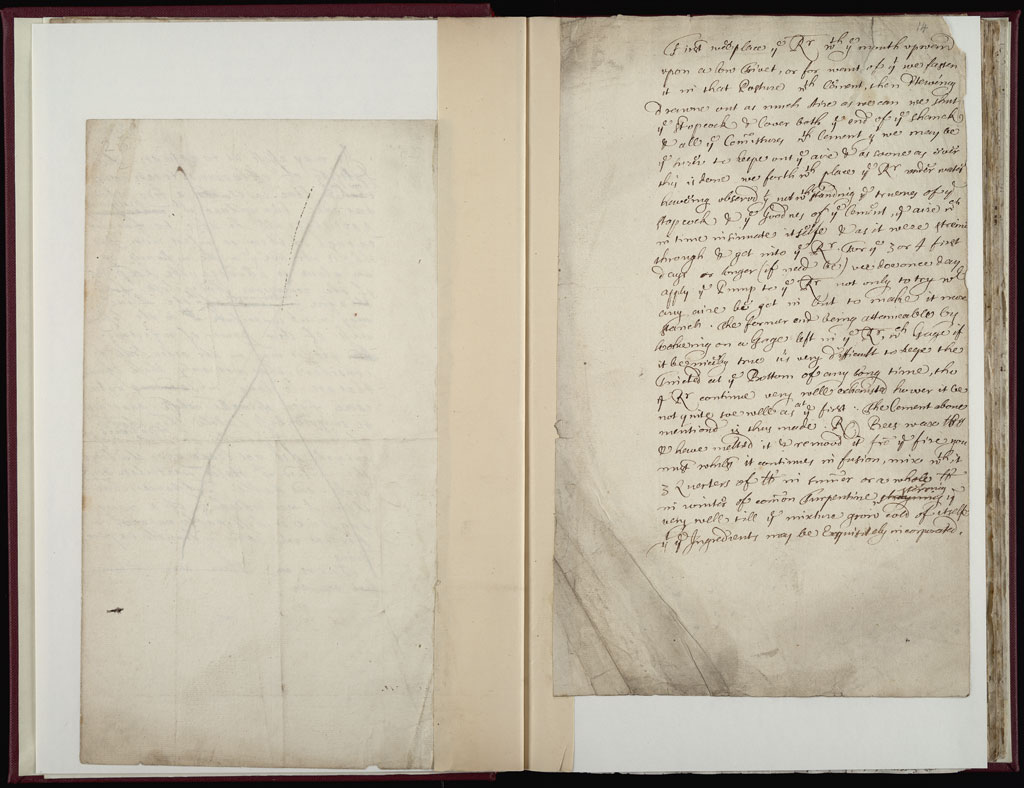 14
First wee place yᵉ Rʳ wᵗʰ yᵉ mouth upward
upon a low Trivet, or for want of yᵗ we fasten
it in that Posture wᵗʰ Cement, then haveing
drawne out as much Aire as we can we shut
yᵉ stopcock & Cover both yᵉ end of yᵉ shanck
& all yᵉ Comissures wᵗʰ Cement yᵗ we may be
yᵉ surer to keepe out yᵉ aire & as soone as ever
this is done we forthwᵗʰ place yᵉ Rʳ under water
haveing observd yᵗ notwᵗʰstanding yᵉ truenes of yᵉ
stopcock & yᵉ Goodnes of yᵉ Cement, yᵉ aire wᵗʰ
in time insinuate itselfe & as it were streine
through & get into yᵉ Rʳ. For yᵉ 3 or 4 first
days or longer (if need be) we doe once a day
apply yᵉ Pump to yᵉ Rʳ not only to try wʳ
any aire be got in but to make it more
stanch. the former end being attaineable by
looking on a Gage left in yᵉ Rʳ, wᶜʰ Gage if
it be nicely true tis very difficult to keepe the
at yᵉ Bottom of any long time, tho
yᵉ Rʳ continue very well exhausted hower it be
not quite soe well as at yᵉ first. The Cement above
mentiond is thus made. Rx Bees wax
& have melted it & remoud it frõ yᵉ fire you
must whilst it continues in fusion, mix wᵗʰ it
3 Quarters of a lb in sum̃er or a whole lb
in winter of com̃on Turpentine stirring it
very well, till yᵉ mixture grow cold of itselfe
yᵗ yᵉ Ingredients may be Exquisitely incorporated.